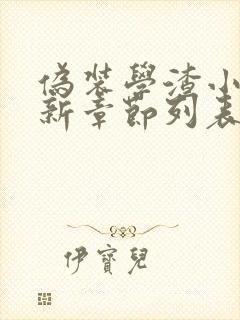 偽裝學渣小
新章節列表
伊寶兒